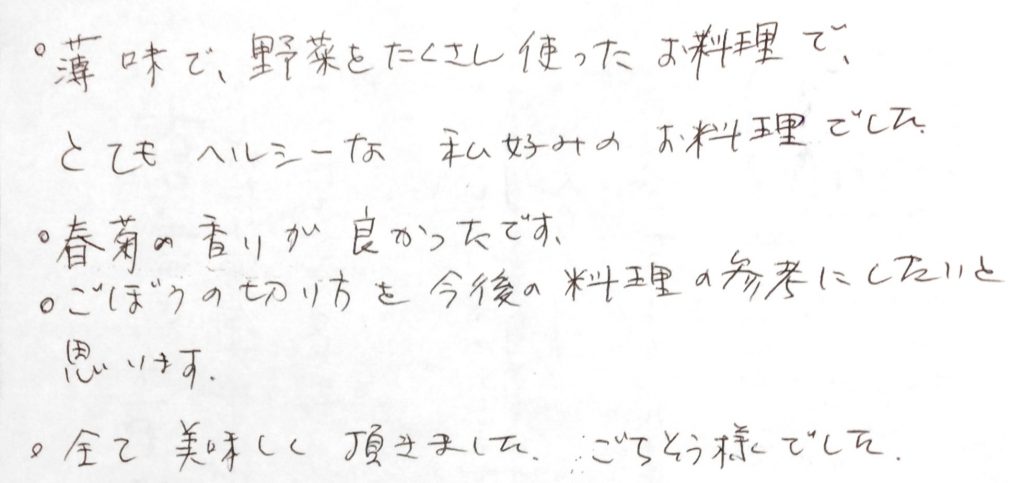 。薄味で、野菜をたくさし使ったお料理で、
とてもヘルシーな 私好みのお料理でした.
。春菊の香りが良かったです、
。ごぼうの切り方を今後の料理の参考にしたいと
思います.
。全て美味しく頂きました. ごちそう様でした.